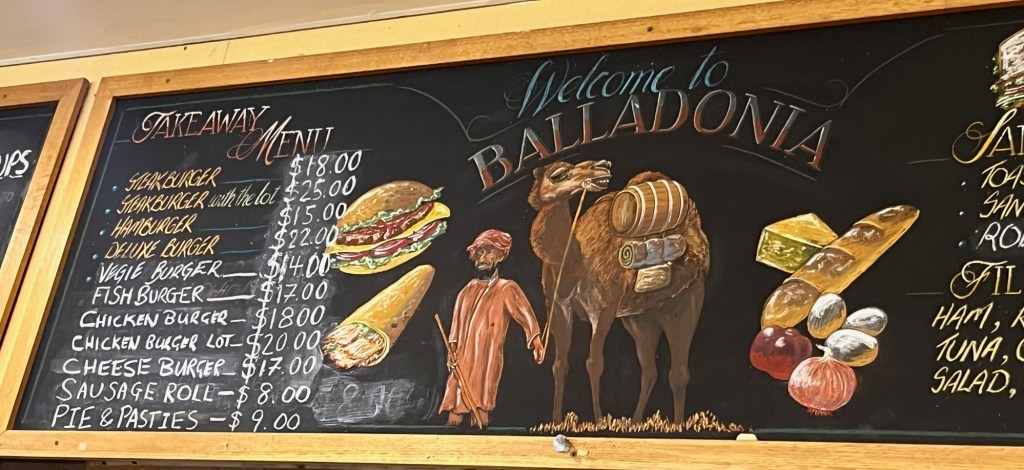 UPS
TAKEAWAY MENU
STEAKBURGER $18.00
STEAKBURGER with the lot $25.00
HAMBURGER $15.00
DELUXE BURGER $22.00
VEGIE BURGER $14.00
FISH BURGER $17.00
CHICKEN BURGER - $18.00
CHICKEN BURGER LOT - $20.00
CHEESE BURGER - $17.00
SAUSAGE ROLL - $8.00
PIE & PASTIES - $9.00
Welcome to
BALLADONIA
TOAS
SAN
ROL
FIL
HAM,
TUNA,
SALAD,